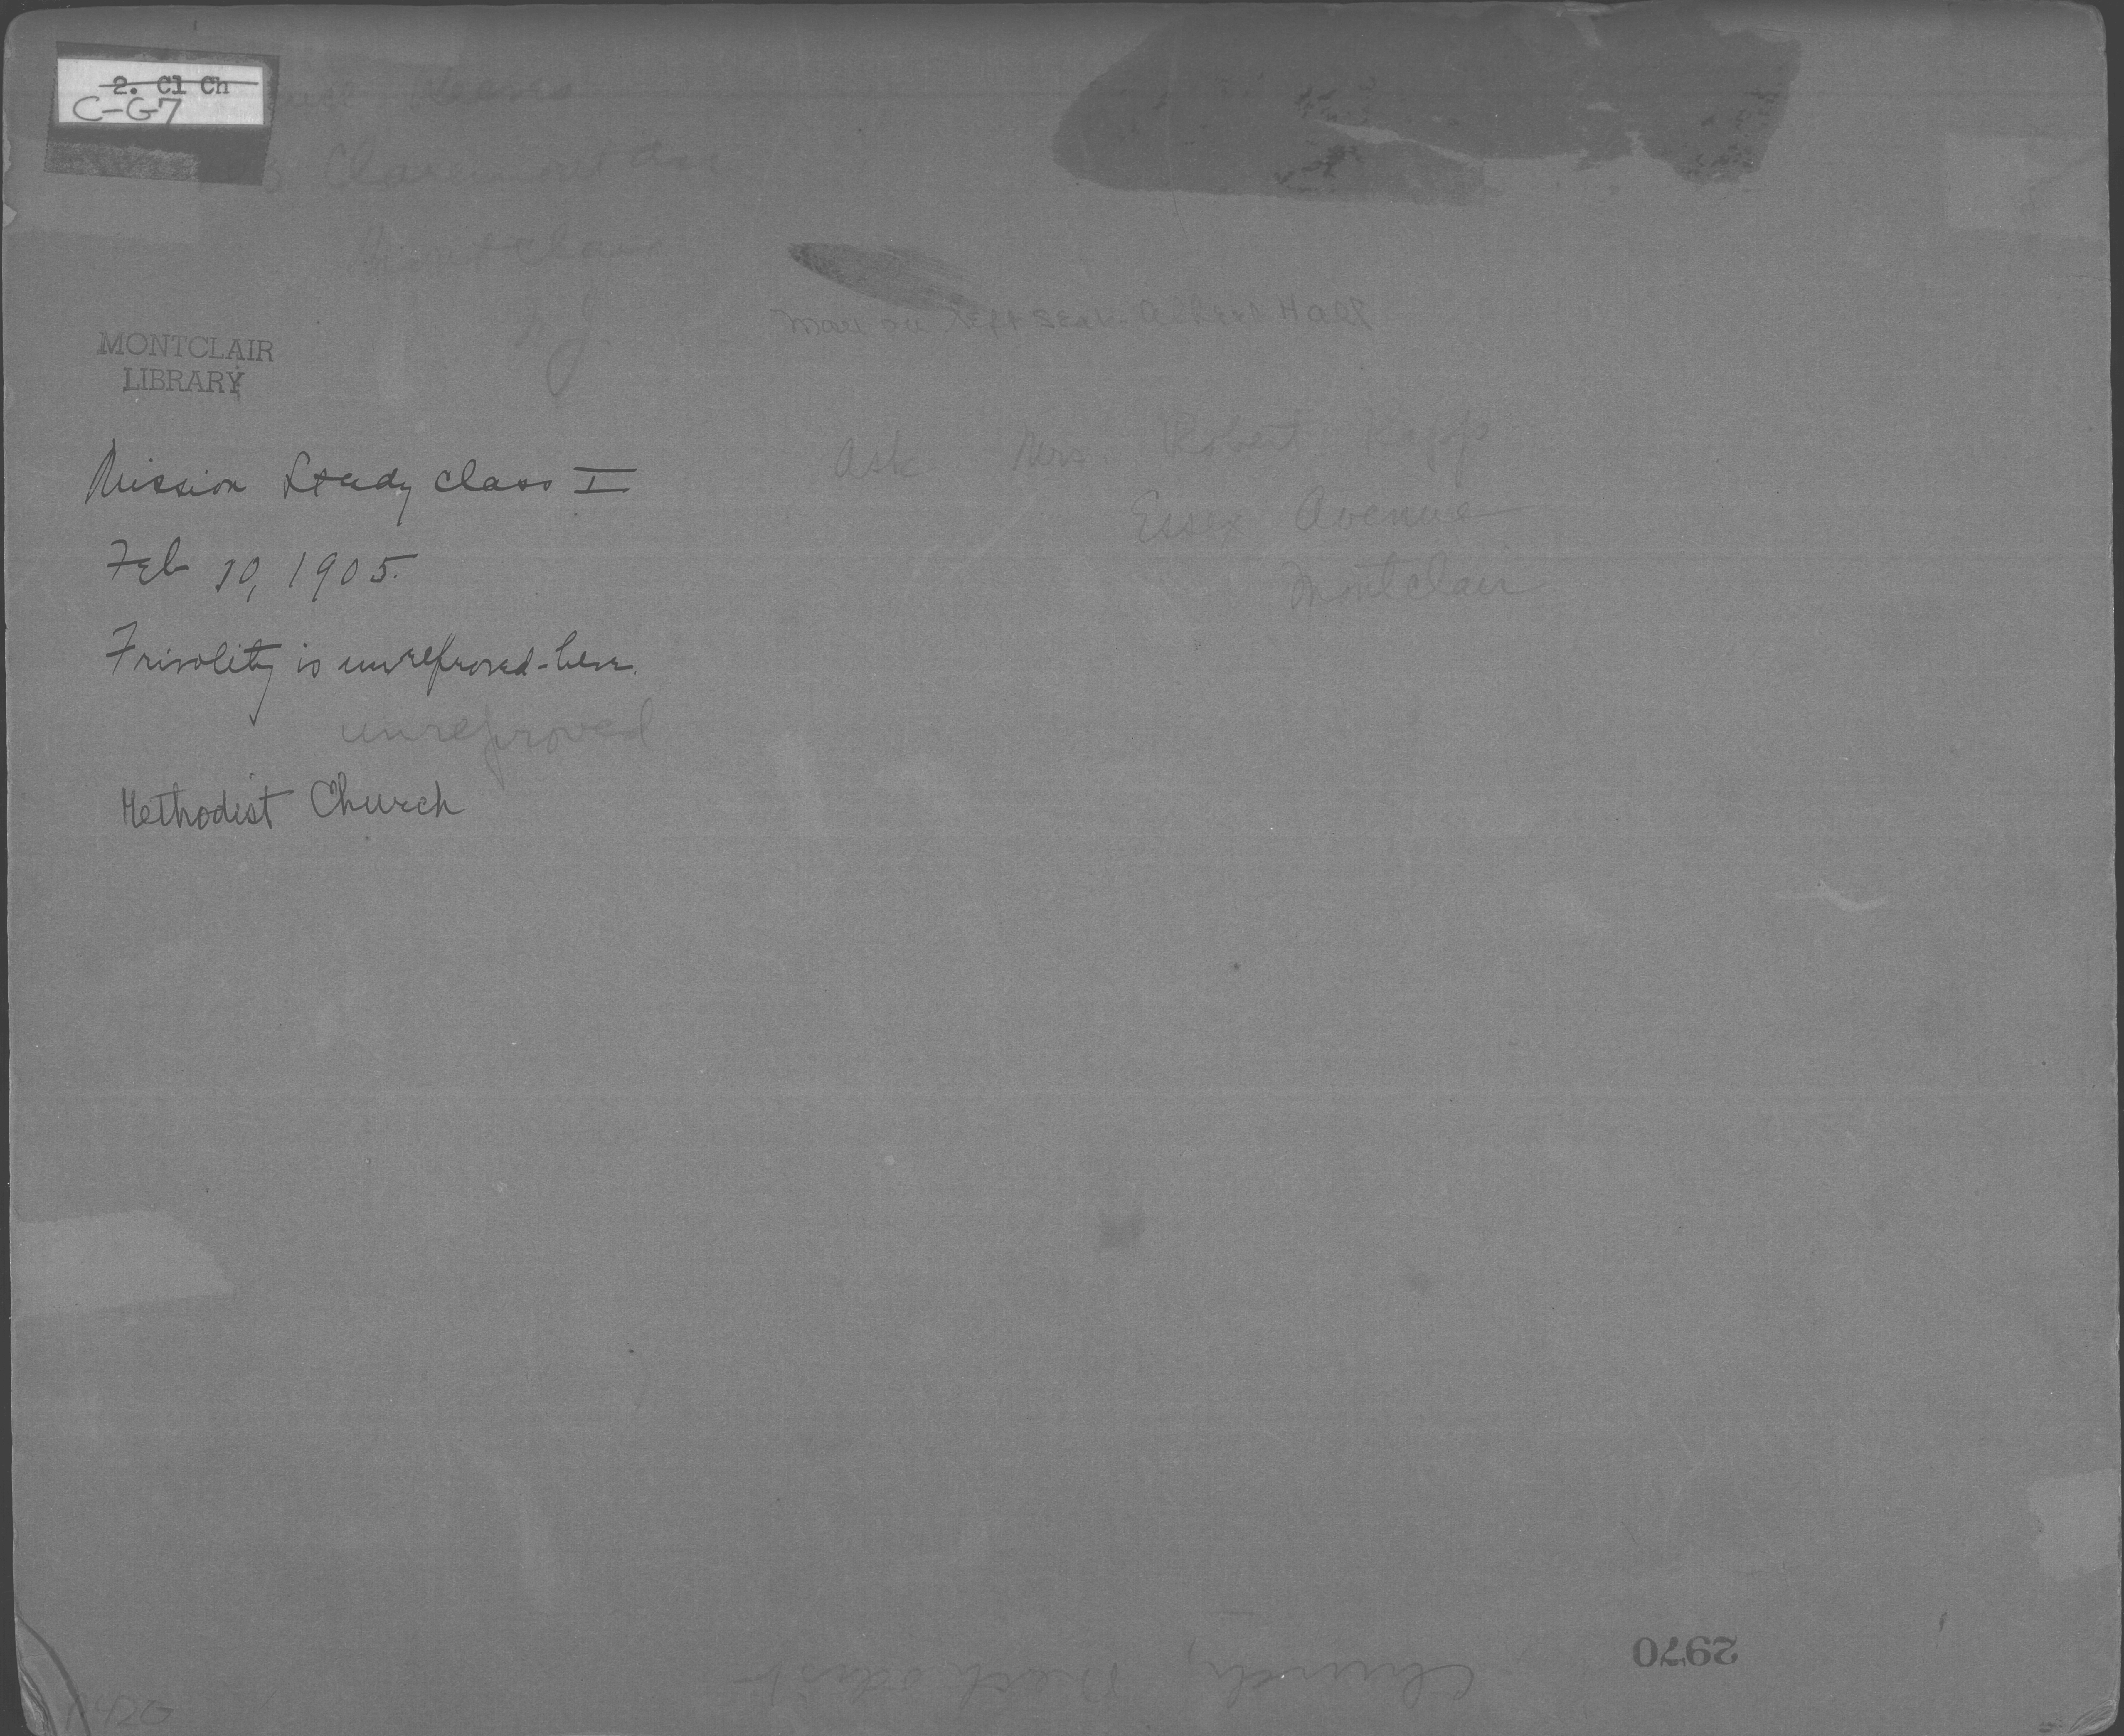 2. Cl Ch
C-G7
Claremont Ave
Montclair
N J.
MONTCLAIR
LIBRARY
Man on left seat - Albert Hall
Ask Mrs. Robert Rapp
Essex Avenue
Montclair
Mission Study Class I
Feb 10, 1905.
Frivolity is unreproved here.
unreproved
Methodist Church
2970
Church, Methodist